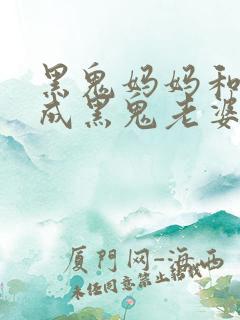 黑鬼妈妈和
成黑鬼老婆
厦门网-海西
未经同意禁止转载